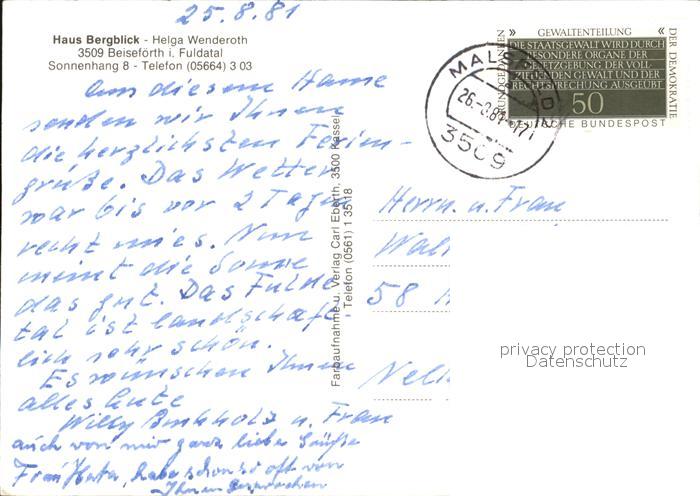 25.8.81
Haus Bergblick - Helga Wenderoth
3509 Beiseförth i. Fuldatal
Sonnenhang 8 - Telefon (05664) 3 03
Aus diesem Hause
senden wir Ihnen
die herzlichsten Ferien-
grüße. Das Wetter
war bis vor 2 Tagen
recht mies. Nun
meint die Sonne
das gut. Das Fulda
tal ist landschaft-
lich sehr schön.
Es wünschen Ihnen
alles Gute
Willy u. Frau
auch von mir ganz liebe Grüße
Frau habe schon so oft von
Ihnen gesprochen
Farbaufnahme u. Verlag Carl Eberth, 3500 Kassel
Telefon (0561) 1 35 18
GEWALTENTEILUNG
DIE STAATSGEWALT WIRD DURCH
BESONDERE ORGANE DER
GESETZGEBUNG, DER VOLL-
ZIEHENDEN GEWALT UND DER
RECHTSPRECHUNG AUSGEÜBT
50
DEUTSCHE BUNDESPOST
GRUNDGEDANKEN
DER DEMOKRATIE
26.-8.81-17
3509
Herrn u. Frau
Wal
58
privacy protection
Datenschutz